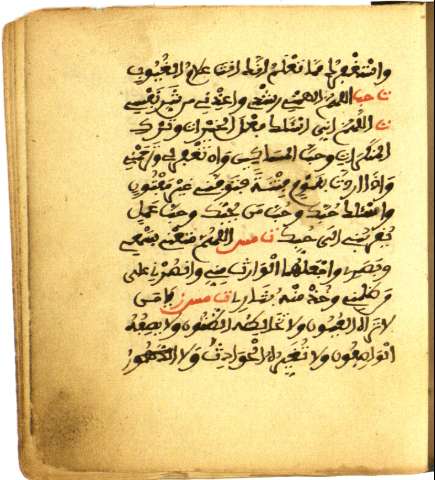 واستغفرك مما تعلم انك انت علام الغيوب
ت حب اللهم الهمني رشدي واعذني من شر نفسي
ت اللهم اني اسئلك فعل الخيرات وترك
المنكرات وحب المساكين وان تغفر لي وترحمني
واذا اردت بقوم فتنة فتوفني غير مفتون
واسئلك حبك وحب من يحبك وحب عمل
يقربني الى حبك ت مس اللهم متعني بسمعي
وبصري واجعلهما الوارث مني وانصرني على
من ظلمني وخذ منه بثاري ت مس ر يا من
لا تراه العيون ولا تخالطه الظنون ولا يصفه
الواصفون ولا تغيره الحوادث ولا الدهور